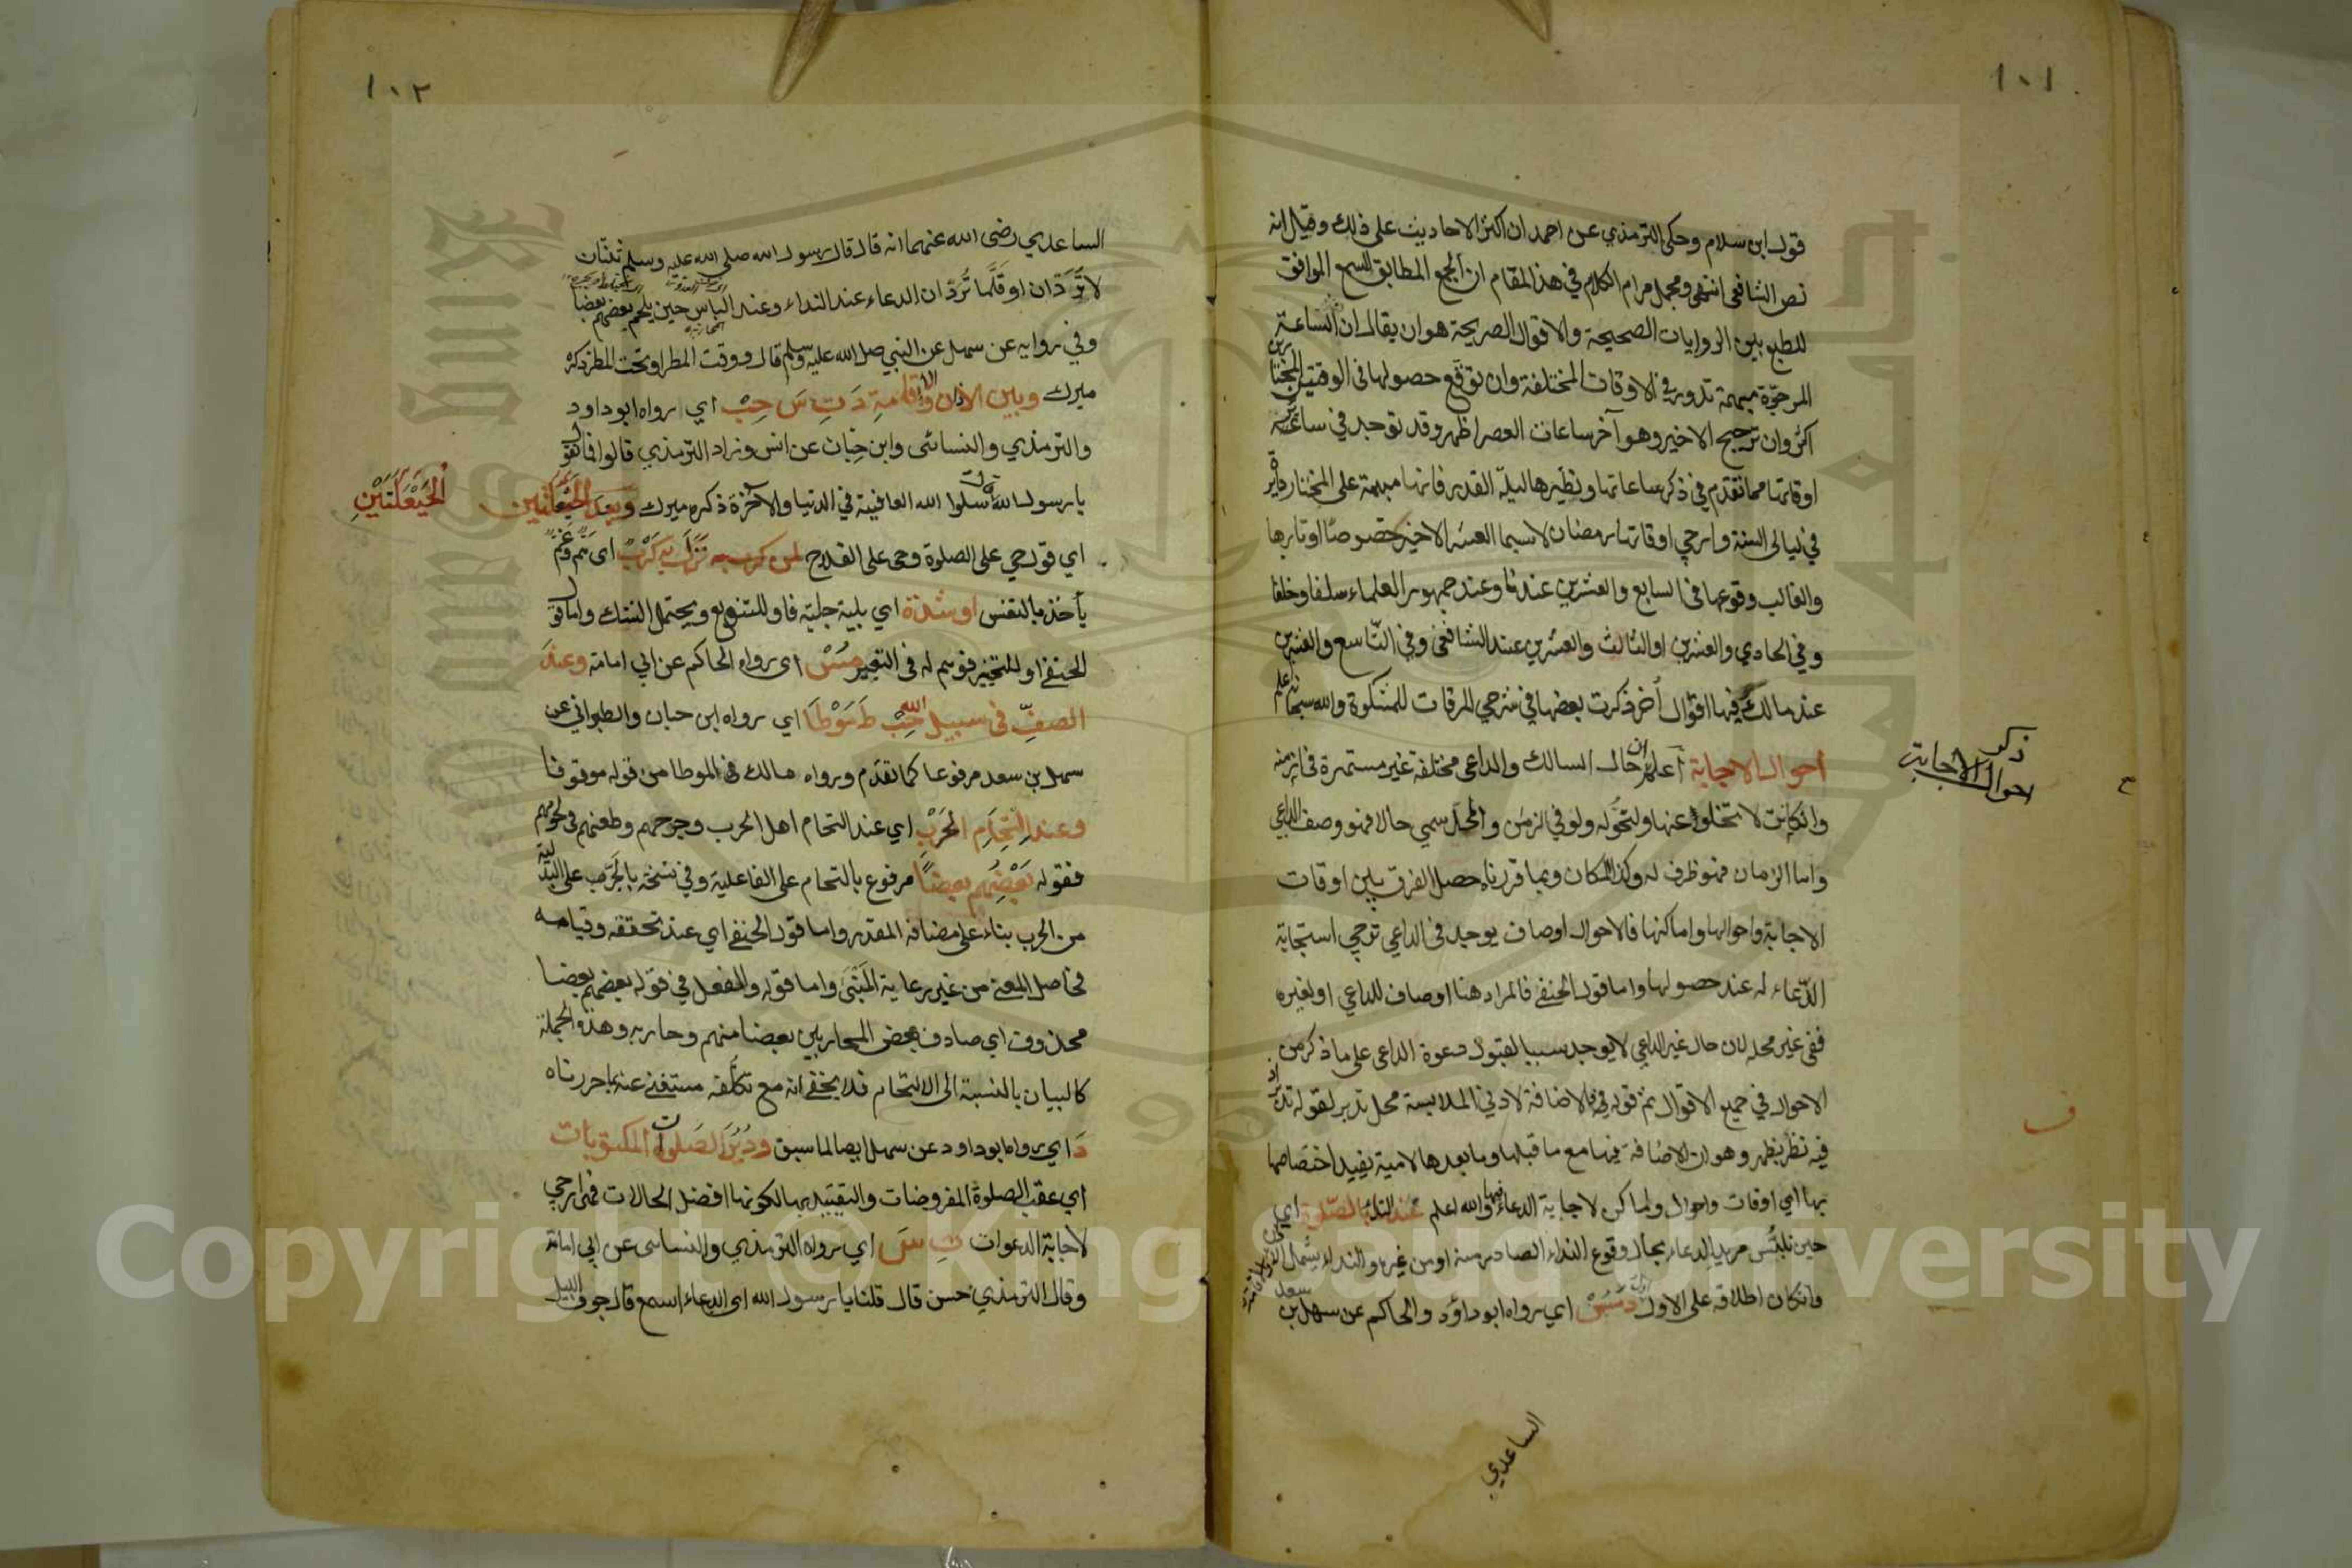 ١٠١
قول ابن سلام وحكى الترمذي عن احمد ان اكثر الاحاديث على ذلك وقيل انه
نص الشافعي انتهى ومجمل مرام الكلام في هذا المقام ان الجمع المطابق للسمع الموافق
للطبع بين الروايات الصحيحة والاقوال الصريحة هو ان يقال ان الساعة
المرجوّة مبهمة تدور في الاوقات المختلفة وان توقع حصولها في الوقتين
اكثر وان ترجيح الاخير وهو آخر ساعات العصر اظهر وقد توجد في سائر
اوقاتها مما تقدّم في ذكر ساعاتها ونظيرها ليلة القدر فانها مبهمة على المختار دائرة
في ليالى السنة وارجي اوقاتها رمضان لاسيما العشر الاخير خصوصًا اوتارها
والغالب وقوعها في السابع والعشرين عندنا وعند جمهور العلماء سلفا وخلفا
وفي الحادي والعشرين او الثالث والعشرين عند الشافعي وفي التاسع والعشرين
عند مالك وفيها اقوال أخر ذكرت بعضها في شرحي المرقات للمشكوة والله سبحانه اعلم
احوال الاجابة اعلم ان حال السالك والداعى مختلفة غير مستمرة في ازمنة
ذكر
احوال الاجابة
وان كانت لا تخلو عنها ولتحوّله ولو في الزمن والمحل سمي حالا فهو وصف الداعي
واما الزمان فهو ظرف له وكذا المكان وبما قررناه حصل الفرق بين اوقات
الاجابة واحوالها واماكنها فالاحوال اوصاف يوجد في الداعي ترجي استجابة
الدّعاء له عند حصولها واما قول الحنفي فالمراد هنا اوصاف للداعي او لغيره
ففى غير محله لان حال غير الداعي لا يوجد سببا لقبول دعوة الداعى على ما ذكر من
الاحوال في جميع الاقوال ثم قوله والاضافة لادني الملابسة محل تدبر لقوله تدبر
فيه نظر يظهر وهو ان الاضافة فيها مع ما قبلها وما بعدها لامية يفيد اختصاصها
بها اي اوقات واحوال واماكن لاجابة الدعاء فيها والله اعلم عند النداء بالصلوة اي
حين تلبّس مريد الدعاء بحال وقوع النداء الصادر منه او من غيره والنداء يشمل
وان كان اطلاقه على الاول د مس اي رواه ابو داوٗد والحاكم عن سهل بن سعد
الساعدي
١٠٢
الساعدي رضى الله عنهما انه قال قال رسول الله صلى الله عليه وسلم ثنتان
لا تُرَدّان او قلّما تُردّان الدعاء عند النداء وعند الباس حين يلحم بعضهم بعضا
وفي رواية عن سهل عن النبي صلى الله عليه وسلم قال ووقت المطر او تحت المطر ذكره
ميرك وبين الاذان والاقامة دَ تِ سَ حِبْ اي رواه ابو داود
والترمذي والنسائى وابن حِبّان عن انس وزاد الترمذي قالوا فما نقول
يا رسول الله قال سلوا الله العافية في الدنيا والآخرة ذكره ميرك وبعد الحَيْعَلَتَين
الحَيْعَلَتَيْنِ
اي قول حي على الصلوة وحى على الفلاح لمن نَزَلَ بِهِ كَرْبٌ اى هَمّ وغَمّ
يأخذ بالنفس او شدّة اي بلية جلية فاو للتنويع ويحتمل الشك واما قول
الحنفي او للتخيير فوسم له في التعبير مُسْ اى رواه الحاكم عن ابي امامة وعندَ
الصفّ في سبيل الله حِبْ طَ مَوْطَا اي رواه ابن حبان والطبراني عن
سهل بن سعد مرفوعا كما تقدّم ورواه مالك في الموطا من قوله موقوفا
وعند التحام الحَرْبِ اي عند التحام اهل الحرب وجرحهم وطعنهم في لحومهم
فقوله بَعْضِهم بعضًا مرفوع بالتحام على الفاعلية وفي نسخة بالجرّ على البدلية
من الحرب بناء على مضافه المقدر واما قول الحنفي اي عند تحققه وقيامه
فحاصل المعنى من غير رعاية المَبْنَى واما قوله والفعل في قوله بعضهم بعضا
محذوف اي صادف بعض المحاربين بعضا منهم وحاربه وهذه الجملة
كالبيان بالنسبة الى الالتحام فلا يخفى انه مع تكلّفه مستغنى عنه بما حررناه
دَ اي رواه ابو داود عن سهل ايضا لما سبق ودُبُرَ الصَلوات المكتوبات
اي عقب الصلوة المفروضات والتقييد بها لكونها افضل الحالات فهى ارجي
لاجابة الدعوات تِ سَ اي رواه الترمذي والنساى عن ابي امامة
وقال الترمذي حسن قال قلنا يا رسول الله اى الدعاء اسمع قال جوف الليل
Copyright © King Saud University